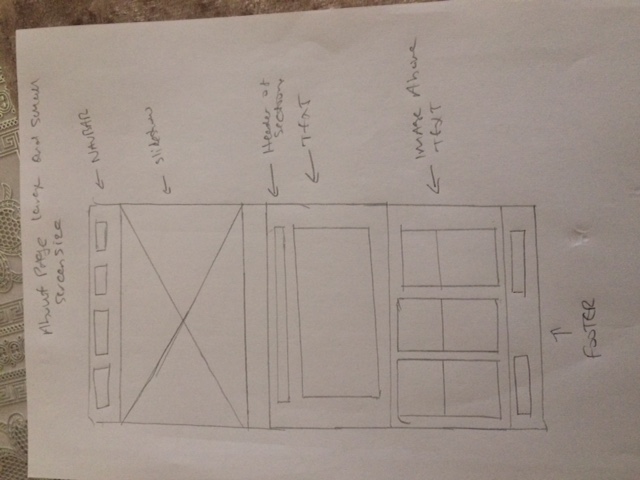 About Page large and small
screen size
← NAVBAR
← slideshow
← Header of
section
← TEXT
← IMAGE Above
TEXT
↑
FOOTER